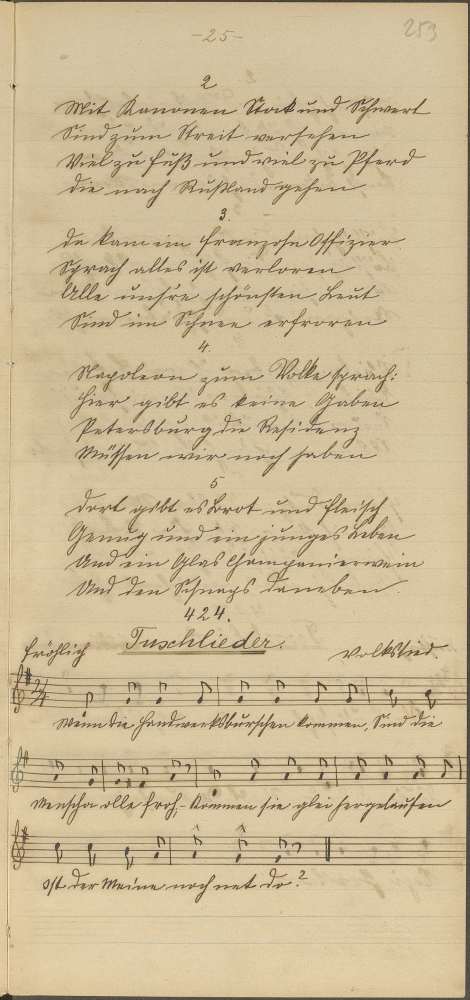 -25-
253
2
Mit Kanonen Stock und Schwert
Sind zum Streit versehen
Viel zu Fuß und viel zu Pferd
die nach Rußland gehen
3.
da kam ein französn Offizier
Sprach alles ist verloren
Alle unsre schönsten Leut
Sind im Schnee erfroren
4.
Napoleon zum Volke sprach:
hier gibt es keine Gaben
Petersburg die Residenz
Müssen wir noch haben
5
dort gibt es Brot und Fleisch
Genug und ein junges Leben
Und ein Glas Champanierwein
Und den Schnaps daneben.
424.
Tuschlieder.
fröhlich Volkslied.
2/4
Wenn die Handwerksburschen kommen, Sind die
Menscha olle froh,- Kommen sie glei hergelaufen
Ost der Meine noch net do?